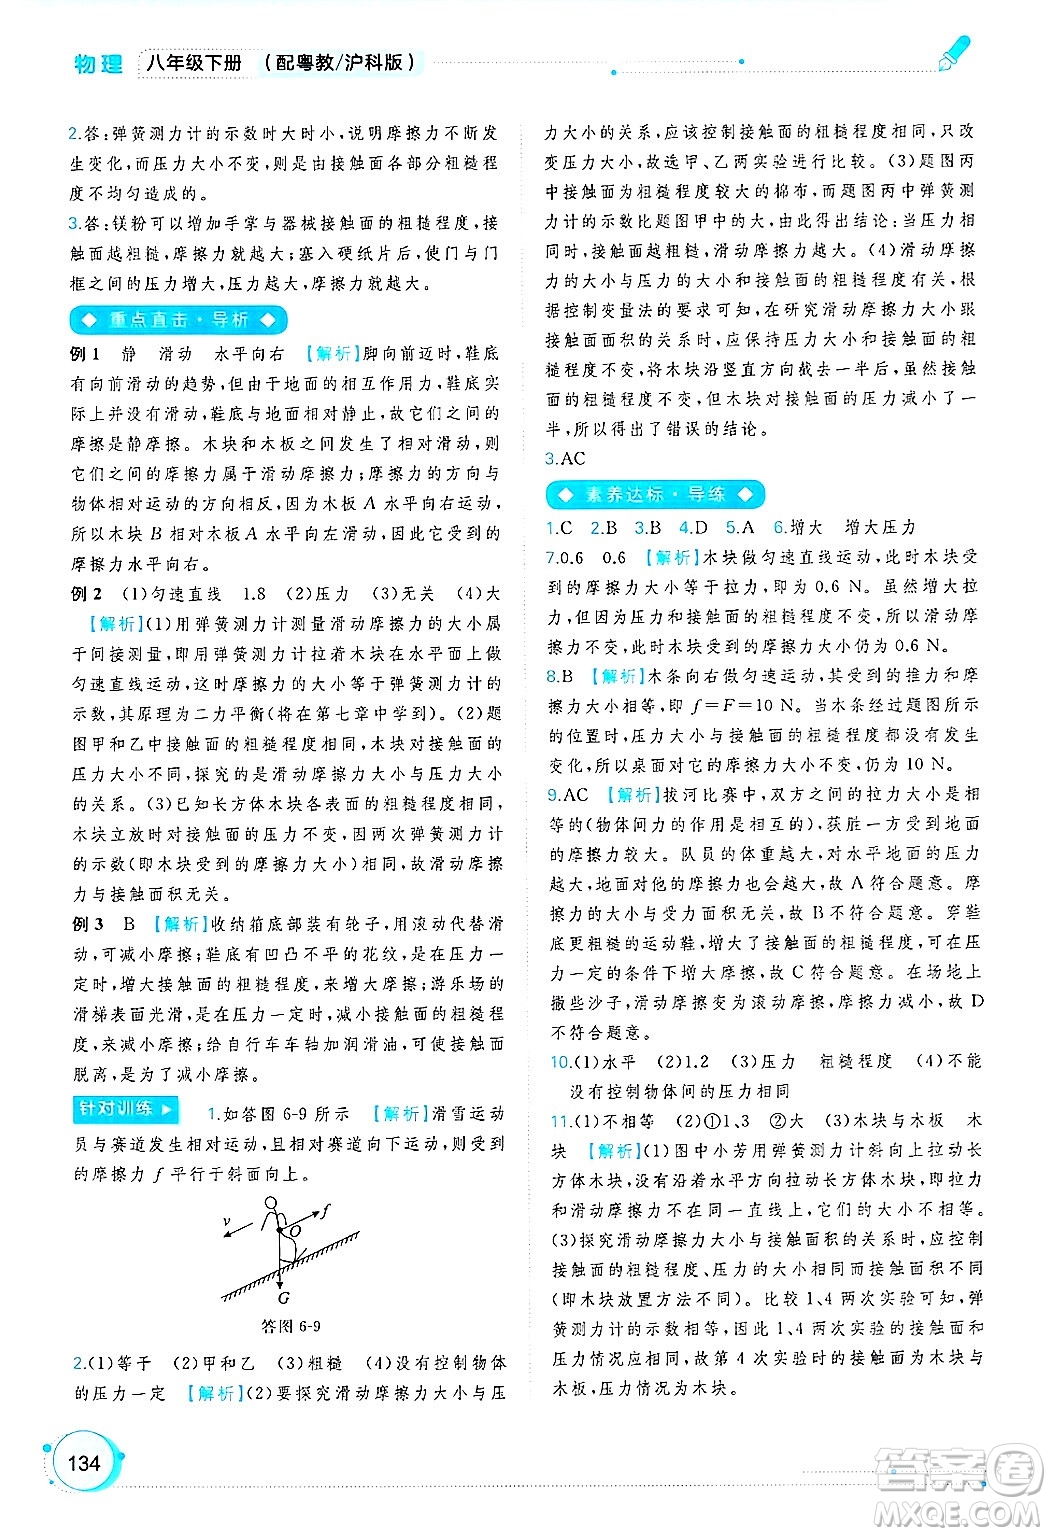 物理 八年级下册 (配粤教/沪科版)
2.答:弹簧测力计的示数时大时小,说明摩擦力不断发
生变化,而压力大小不变,则是由接触面各部分粗糙程
度不均匀造成的。
3.答:镁粉可以增加手掌与器械接触面的粗糙程度,接
触面越粗糙,摩擦力就越大;塞入硬纸片后,使门与门
框之间的压力增大,压力越大,摩擦力就越大。
重点直击·导析
例1 静 滑动 水平向右 【解析】脚向前迈时,鞋底
有向前滑动的趋势,但由于地面的相互作用,鞋底
实际上并没有滑动,鞋底与地面相对静止,故它们之间的
摩擦是静摩擦。木块和木板之间发生了相对滑动,则
它们之间的摩擦力属于滑动摩擦力;摩擦力的方向与
物体相对运动的方向相反,因为木板 A 水平向右运动,
所以木块 B 相对于木板 A 水平向左运动,则木块 B 所受
摩擦力水平向右。
例2 (1)匀速直线 1.8 (2)压力 (3)无关 (4)大
【解析】(1)用弹簧测力计测量滑动摩擦力的大小属
于间接测量,即用弹簧测力计拉着木块在水平面上做
匀速直线运动,这时摩擦力的大小等于弹簧测力计的
示数,其原理为二力平衡(将在第七章中学到)。(2)题
图甲和乙中接触面的粗糙程度相同,木块对接触面的
压力大小不同,探究的是滑动摩擦力大小与压力大小
的关系。(3)已知长方体木块各表面的粗糙程度相同,
木块立放时对接触面的压力不变,因两次弹簧测力计
的示数(即木块受到的摩擦力大小)相同,故滑动摩擦
力与接触面积无关。
例3 B 【解析】收纳箱底部装有轮子,用滚动代替滑
动,可减小摩擦;鞋底有凹凸不平的花纹,是在压力一
定时,增大接触面的粗糙程度,来增大摩擦;游乐场的
滑梯表面光滑,是在压力一定时,减小接触面的粗糙程
度,来减小摩擦;给自行车车轴加润滑油,使接触面
脱离,是为了减小摩擦。
针对训练 1.如答图 6-9 所示 【解析】滑雪运动
员与赛道发生相对运动,且相对赛道向下运动,受到
的摩擦力 f 平行于斜面向上。
v f O G
答图 6-9
2.(1)等于 (2)甲和乙 (3)粗糙 (4)没有控制物体
的压力一定 【解析】(2)要探究滑动摩擦力大小与压
力大小的关系,应该控制接触面的粗糙程度相同,只改
变压力大小,故选甲、乙两实验进行比较。(3)题图丙
中接触面为粗糙程度较大的棉布,而题图丙中弹簧测
力计的示数比题图甲中的大,由此可得出结论:当压力
相同时,接触面越粗糙,滑动摩擦力越大。(4)滑动摩擦
力的大小与压力大小和接触面的粗糙程度有关,
根据控制变量法的要求可知,在研究滑动摩擦力大小
与接触面积的关系时,应保持压力大小和接触面的粗
糙程度不变,将木块沿竖直方向切去一半后,接触面
的粗糙程度不变,但木块对接触面的压力减小了一
半,所以得出了错误的结论。
3.AC
素养达标·导练
1.C 2.B 3.B 4.D 5.A 6.增大 增大压力
7.0.6 0.6 【解析】木块做匀速直线运动,此时木块受
到的摩擦力大小等于拉力,即为 0.6 N。虽然增大速
度,但是由于压力和接触面的粗糙程度不变,所以滑动
摩擦力不变,此时木块受到的摩擦力大小仍为 0.6 N。
8.B 【解析】木条向右做匀速运动,其受到的推力和摩
擦力大小相等,即 f＝F＝10 N。当木条经过题图所示
的位置时,压力大小与接触面的粗糙程度没有发生
变化,所以桌面对它的摩擦力大小不变,仍为 10 N。
9.AC 【解析】拔河比赛中,双方对绳的拉力大小是相
等的(物体间力的作用是相互的),获胜一方受到地面
的摩擦力较大。队员的体重越大,对水平地面的压力
越大,受到地面的摩擦力越大,故 A 符合题意。摩
擦力的大小与受力面积无关,故 B 不符合题意。穿鞋
底更粗糙的运动鞋,增大了接触面的粗糙程度,在压
力一定的条件下增大摩擦,故 C 符合题意。在场地上
撒些沙子,滑动摩擦变为滚动摩擦,摩擦力减小,故 D
不符合题意。
10.(1)水平 (2)1.2 (3)压力 粗糙程度 (4)不能
没有控制物体间的压力相同
11.(1)不相等 (2)①1、3 ②大 (3)木块与木板 木
块 【解析】(1)图中小芳用弹簧测力计斜向上拉动长
方体木块,没有沿着水平方向拉动长方体木块,即拉力
和滑动摩擦力不在同一直线上,所以它们的大小不相等。
(3)探究滑动摩擦力大小与接触面积的关系时,应控制
接触面的粗糙程度、压力的大小相同而改变接触面积
(即木块放置方法不同),比较 1、4 两次实验可知,弹
簧测力计的示数相等,由于 1、4 两次实验的接触面和
压力情况应相同,故第 4 次实验时的接触面为木块与
木板,压力情况为木块。
134
答案卷
MXQE.COM